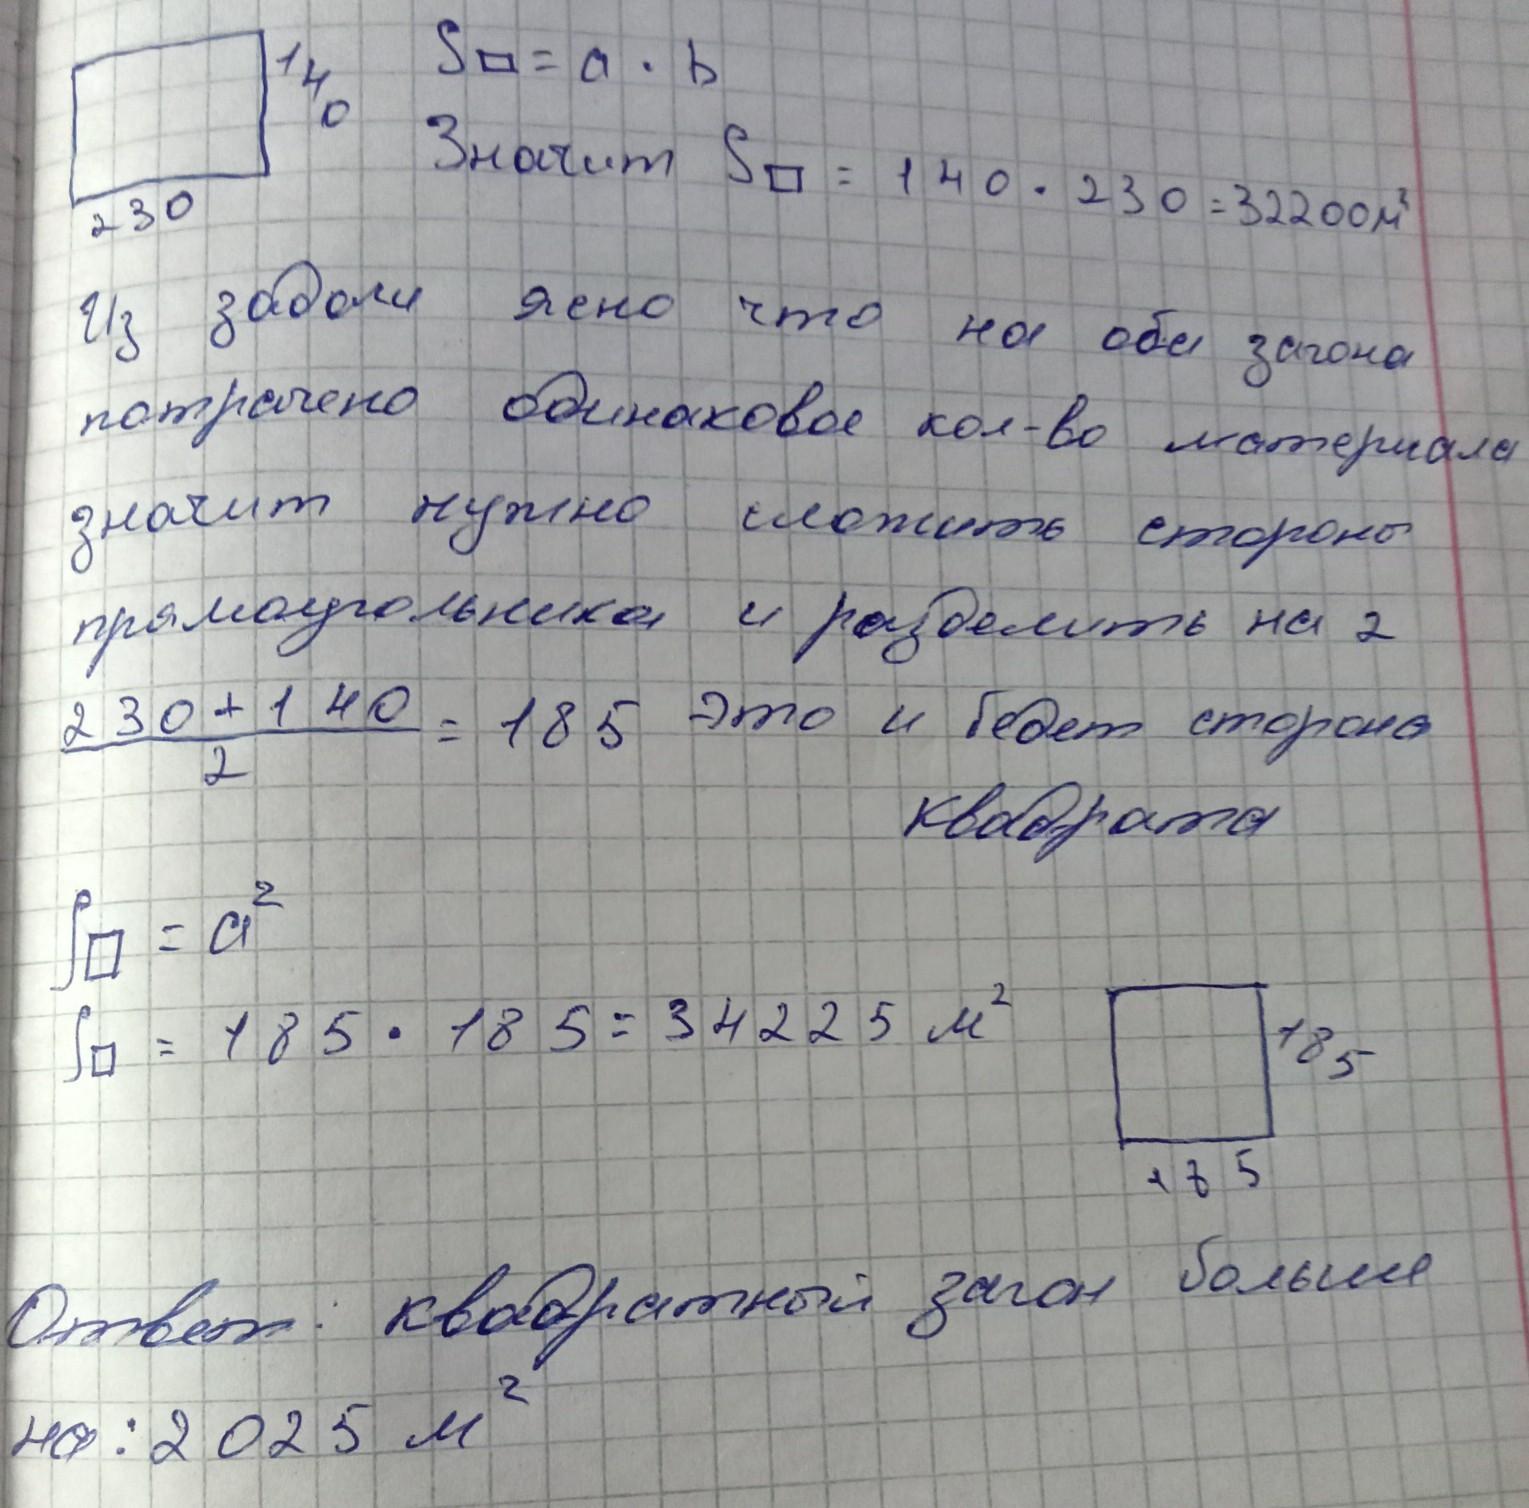 140
S▭ = a · b
Значит S▭ = 140 · 230 = 32200м²
230
Из задачи ясно что на оба загона
потрачено одинаковое кол-во материала
значит нужно сложить стороны
прямоугольника и разделить на 2
230+140/2 = 185 Это и будет сторона
квадрата
S□ = a²
S□ = 185 · 185 = 34225 м²
185
185
Ответ: квадратный загон больше
на: 2025 м²